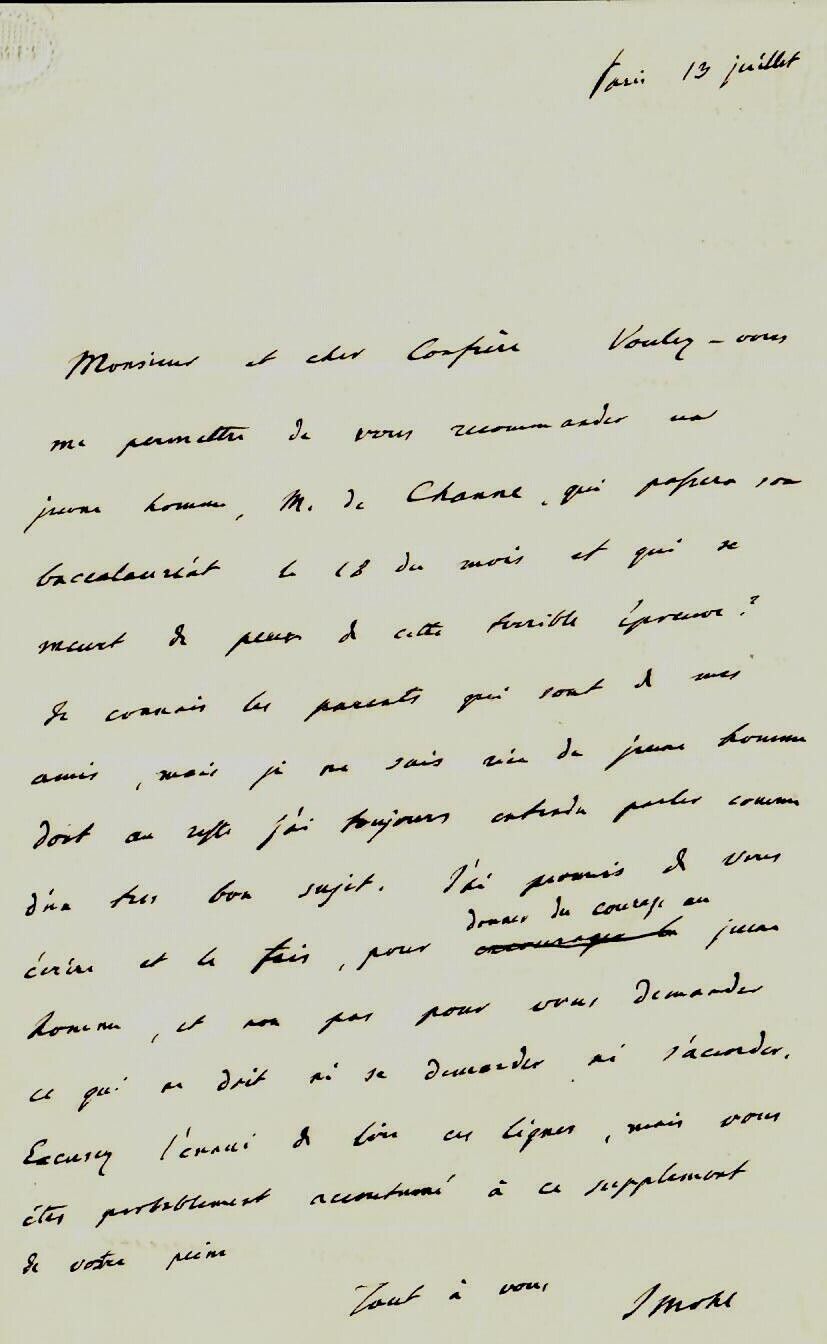 Paris 13 juillet
Monsieur et cher Confrère Voulez-vous
me permettre de vous recommander un
jeune homme, M. de Channe, qui passera son
baccalauréat le 18 du mois et qui se
meurt de peur de cette terrible épreuve?
Je connais les parents qui sont de mes
amis, mais je ne sais rien du jeune homme
dont au reste j'ai toujours entendu parler comme
d'un tres bon sujet. J'ai promis de vous
donner du courage au
écrire et le fais, pour encourager le jeune
homme, et non pas pour vous demander
ce qui ne doit ni se demander ni s'accorder.
Excusez l'ennui de lire ces lignes, mais vous
êtes probablement accoutumé à ce supplement
de votre peine
Tout à vous J Mohl